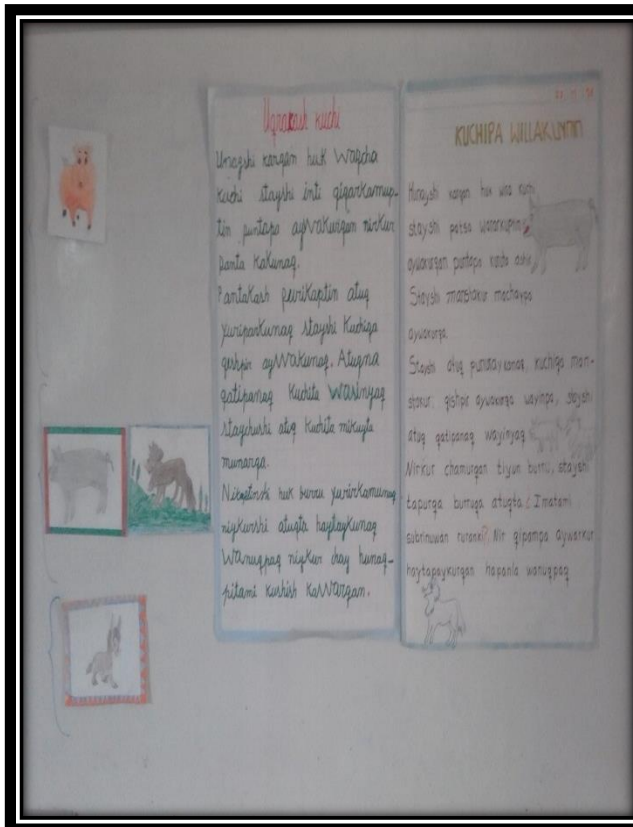 Uqrakash kuchi
Unayshi kargan huk waqcha
kuchi stayshi inti qiqarkamup-
tin puntapa aywakurqan nirkur
panta kakunaq.
Pantakash purikaptin atuq
yuriparkunaq stayshi Kuchiqa
qeshpir aywakunaq. Atuqna
qatipanaq Kuchita wasinyaq
stayshi atuq kuchita mikuyta
munarqa.
huk burru yurirkamunaq
niykurshi atuqta haytaykunaq
wanuqpaq niykur chay hunaq-
pitami kushish kawargan.
KUCHIPA WILLAKUYNIN
Hunayshi kargan huk kuchi
stayshi patsa
aywakurgan puntapa
Stayshi manshakur machaypa
aywakurqa.
Stayshi atuq kuchiqa man-
shakur, qishpir aywakurqa wayinpa, stayshi
atuq qatipanaq wayinyaq
Nirkur chamurgan tiyun burru, stayshi
tapurqa burruqa atuqta: Imatami
sobrinuwan ruranki? Nir qipampa aywarkur
haytapaykurgan hapanla wanuqpaq